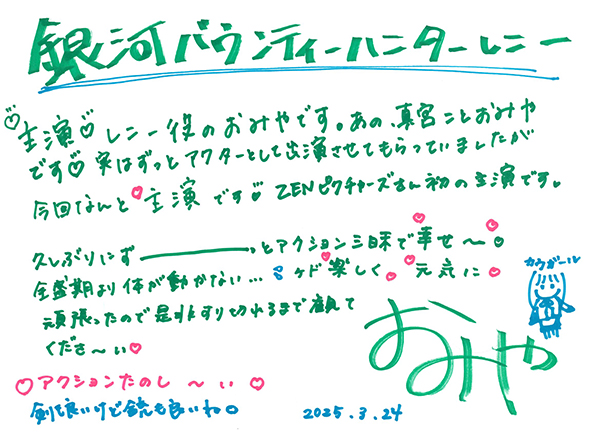 銀河バウンティーハンターレニー
♡主演♡レニー役のおみやです。あの、真宮ことおみや
です♡実はずっとアクターとして出演させてもらっていましたが
今回なんと♡主演です♡ZENピクチャーズさん初の主演です。
久しぶりにずーーーっとアクション三昧で幸せ〜♡
全盛期より体が動かない…ケド楽しく♡元気に♡
頑張ったので是非すり切れるまで観て
くださ〜い♡
カウガール
おみや
♡アクションたのし〜い♡
剣も良いけど銃も良いね。
2025.3.24